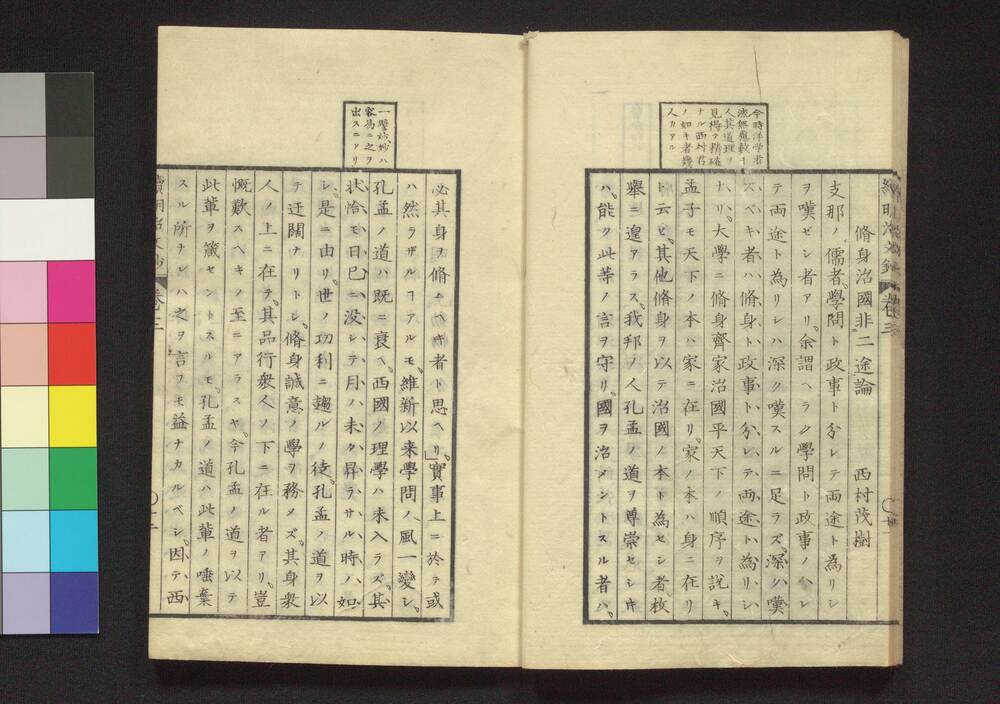 今時洋学者
漆無慮数十
人其道理ヲ
見得テ精確
ナル西村君
ノ如キ者幾
人カアル
脩身治國非二途論 西村茂樹
支那ノ儒者學問ト政事ト分レテ両途ト為リシ
ヲ嘆ゼシ者アリ。余謂ヘラク學問ト政事ノ分レ
テ両途ト為リシハ深ク嘆スルニ足ラズ。深ク嘆
ズベキ者ハ脩身ト政事ト分レテ両途ト為リシ
ナリ。大學ニ脩身齊家治國平天下ノ順序ヲ説キ。
孟子モ天下ノ本ハ家ニ在リ。家ノ本ハ身ニ在リ
ト云ヒ。其他脩身ヲ以テ治國ノ本ト為セシ者枚
舉ニ遑アラス。我邦ノ人孔孟ノ道ヲ尊崇セシ时
ハ。能ク此等ノ言ヲ守リ。國ヲ治メントスル者ハ。
一譬妙、妙ハ
容易ニ之ヲ
出スニアリ
必其身ヲ脩ムベキ者ト思ヘリ」實事上ニ於テ或
ハ然ラザルヿアルモ。維新以来學問ノ風一變シ。
孔孟ノ道ハ既ニ衰ヘ。西國ノ理學ハ未入ラズ。其
状恰モ日已ニ没シテ月ハ未タ昇ラサル時ハ如
シ。是ニ由リ。世ノ功利ニ趨ルノ徒。孔孟ノ道ヲ以
テ迂闊ナリトシ。脩身誠意ノ學ヲ務メズ。其身衆
人ノ上ニ在テ。其品行衆人ノ下ニ在ル者アリ。豈
慨歎スヘキノ至ニアラスヤ。今孔孟ノ道ヲ以テ
此輩ヲ箴セントスルモ。孔孟ノ道ハ此輩ノ唾棄
スル所ナレハ之ヲ言フモ益ナカルベシ。因テ西